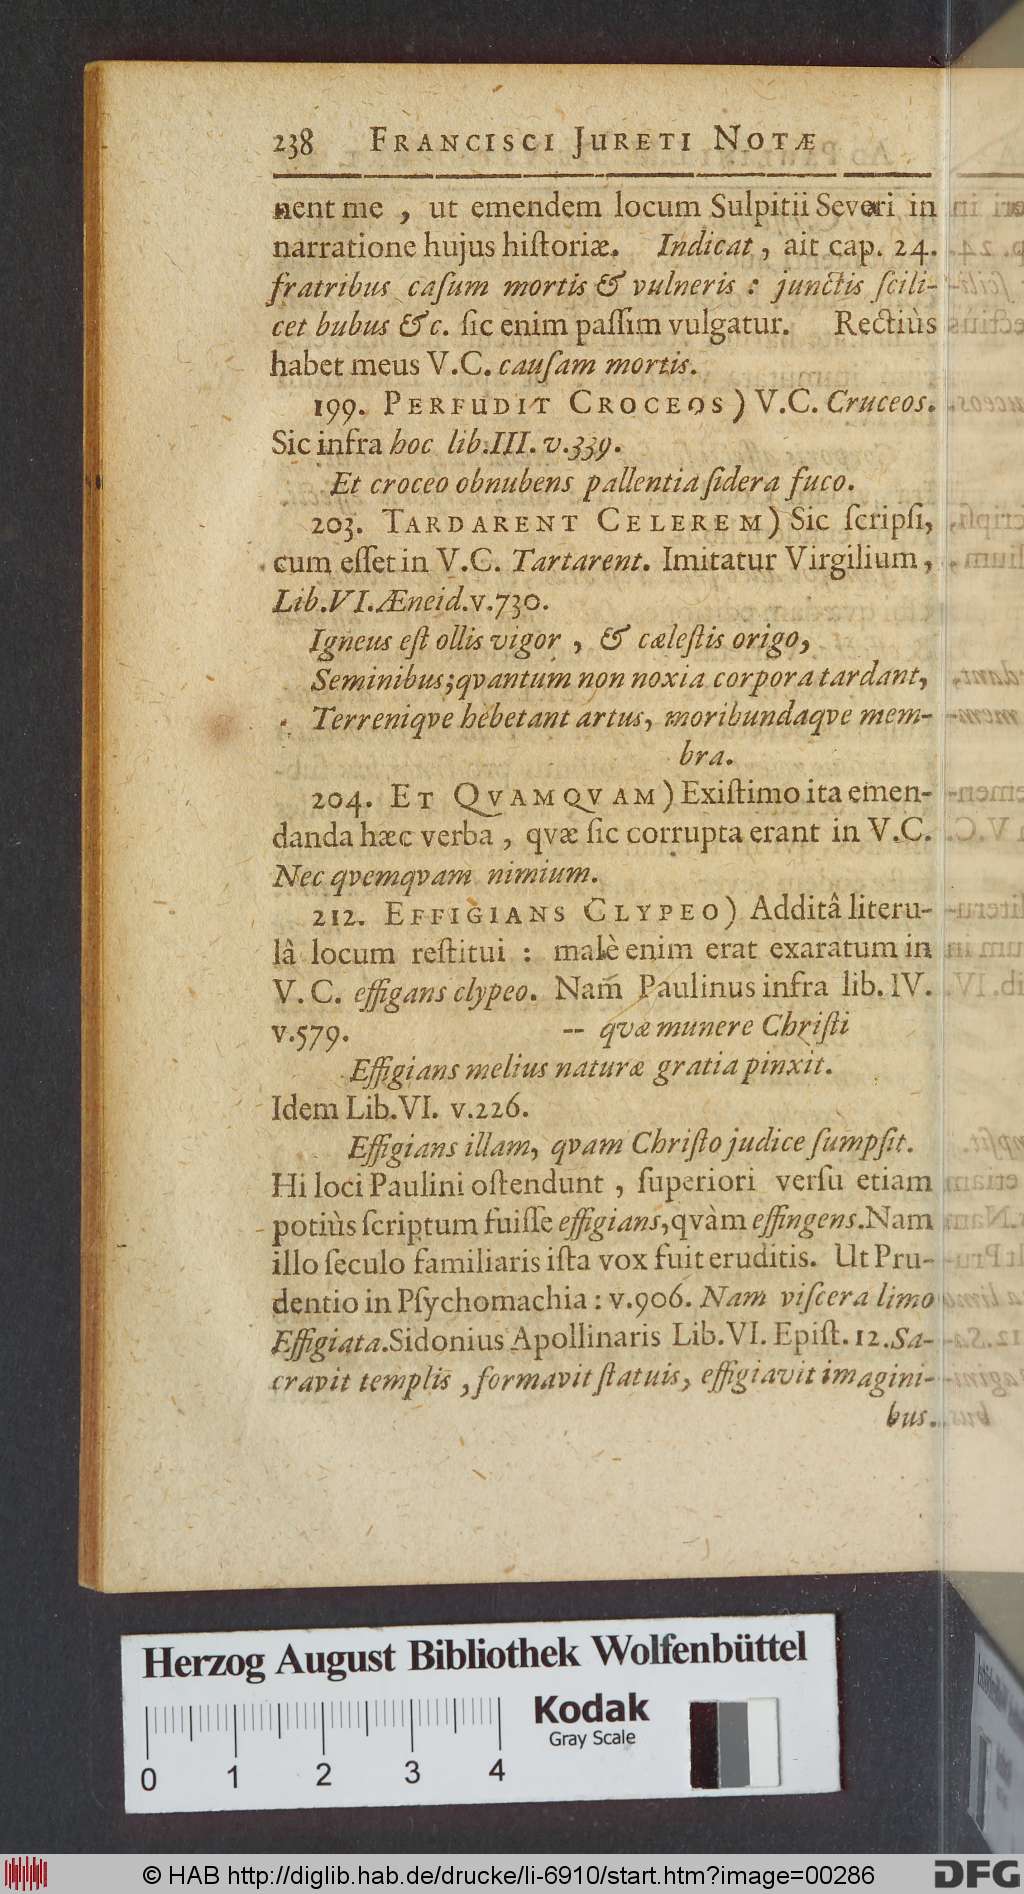 238 FRANCISCI JURETI NOTÆ
nent me , ut emendem locum Sulpitii Severi in
narratione hujus hiſtoriæ. Indicat , ait cap. 24.
fratribus caſum mortis & vulneris : junctis ſcili-
cet bubus &c. ſic enim paſſim vulgatur. Rectiùs
habet meus V.C. cauſam mortis.
199. PERFUDIT CROCEOS ) V.C. Cruceos.
Sic infra hoc lib.III. v.339.
Et croceo obnubens pallentia ſidera fuco.
203. TARDARENT CELEREM ) Sic ſcripſi,
cum eſſet in V.C. Tartarent. Imitatur Virgilium ,
Lib.VI.Æneid.v.730.
Igneus eſt ollis vigor , & cæleſtis origo,
Seminibus;qvantum non noxia corpora tardant,
Terreniqve hebetant artus, moribundaqve mem-
bra.
204. ET QVAMQVAM ) Exiſtimo ita emen-
danda hæc verba , qvæ ſic corrupta erant in V.C.
Nec qvemqvam nimium.
212. EFFIGIANS CLYPEO ) Additâ literu-
lâ locum reſtitui : malè enim erat exaratum in
V.C. effigans clypeo. Nam Paulinus infra lib. IV.
v.579. -- qvæ munere Chriſti
Effigians melius naturæ gratia pinxit.
Idem Lib.VI. v.226.
Effigians illam, qvam Chriſto judice ſumpſit.
Hi loci Paulini oſtendunt , ſuperiori verſu etiam
potiùs ſcriptum fuiſſe effigians,qvàm effingens.Nam
illo ſeculo familiaris iſta vox fuit eruditis. Ut Pru-
dentio in Pſychomachia : v.906. Nam viſcera limo
Effigiata.Sidonius Apollinaris Lib.VI. Epiſt. 12.Sa-
cravit templis , formavit ſtatuis, effigiavit imagini-
bus.
Herzog August Bibliothek Wolfenbüttel
Kodak
Gray Scale
0 1 2 3 4
© HAB http://diglib.hab.de/drucke/li-6910/start.htm?image=00286
DFG